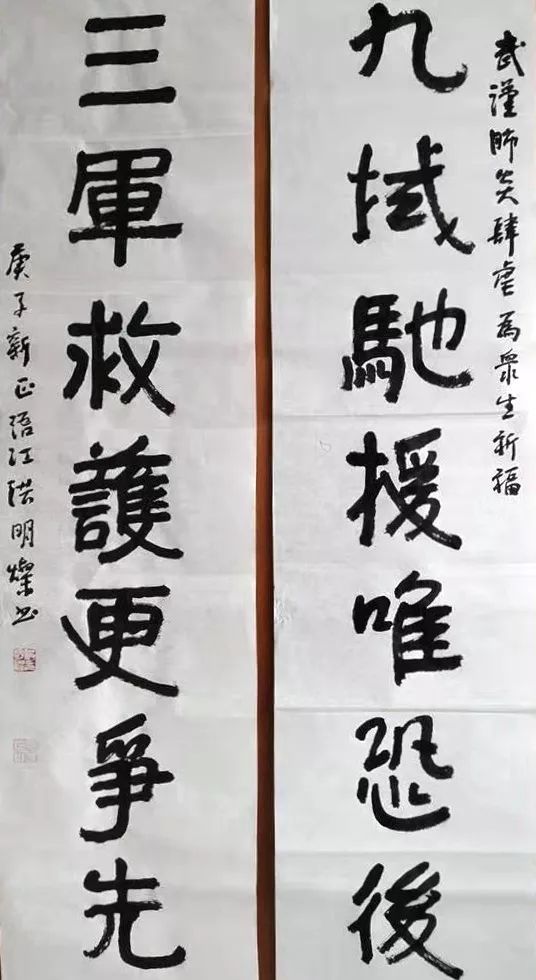 武漢肺炎肆虐為眾生祈福
九域馳援唯恐後
三軍救護更爭先
庚子新正浯江洪明燦书